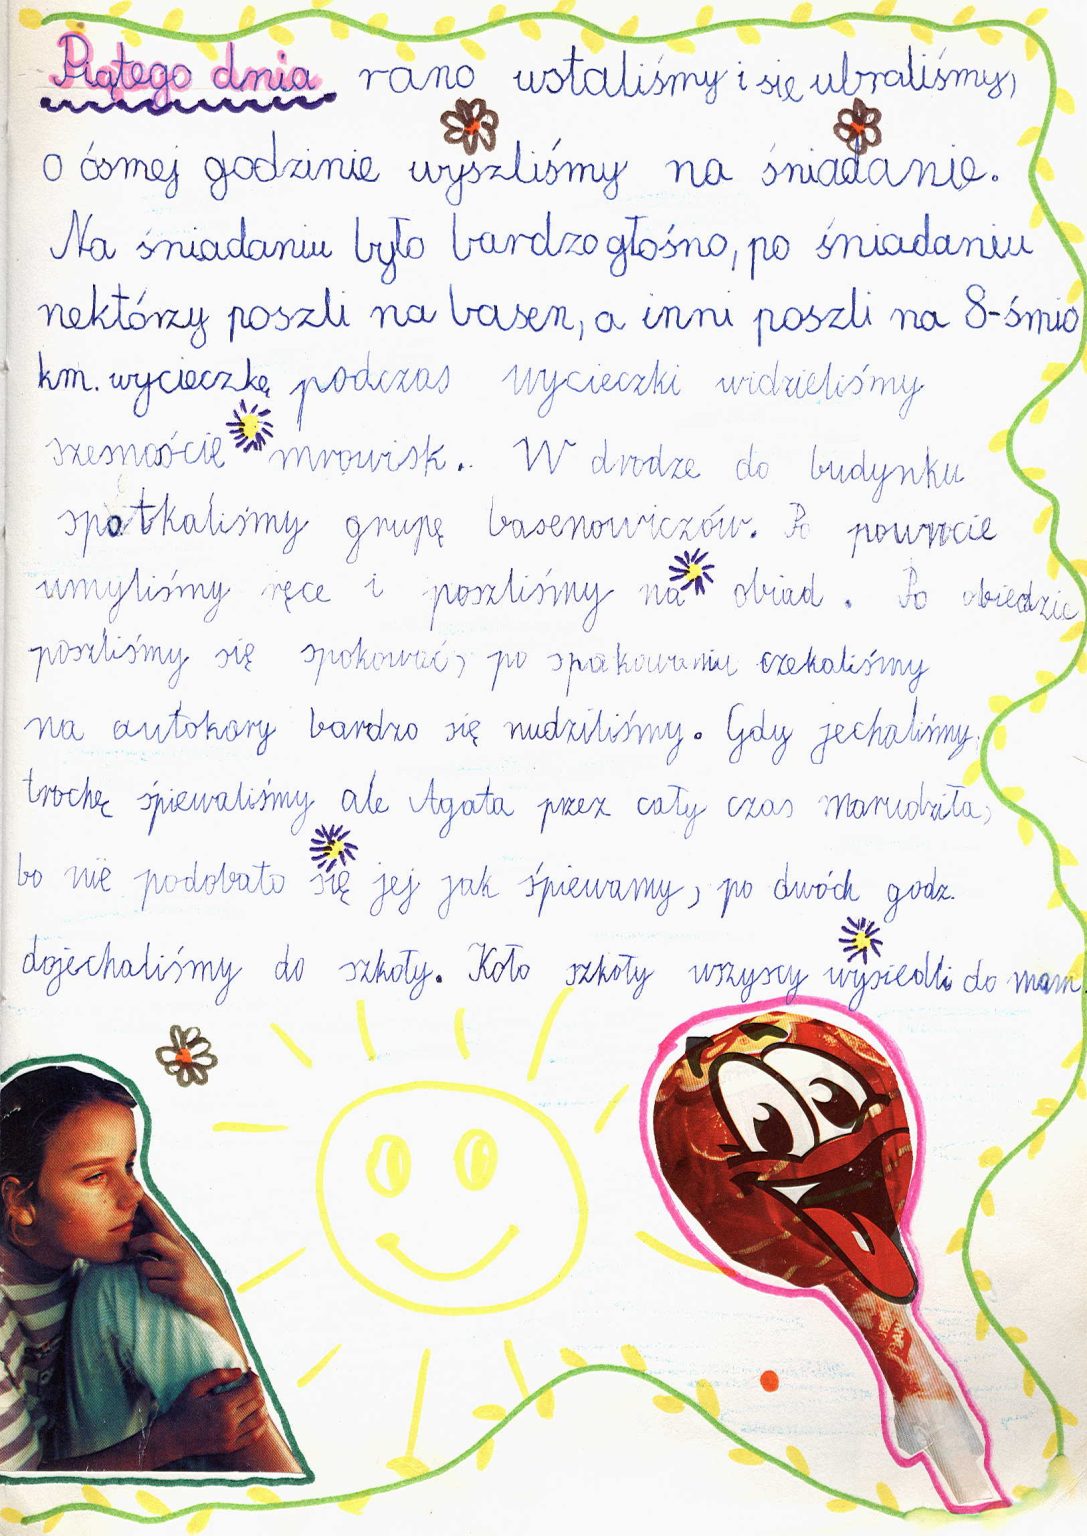 Piątego dnia rano wstaliśmy i się ubraliśmy,
o ósmej godzinie wyszliśmy na śniadanie.
Na śniadaniu było bardzo głośno, po śniadaniu
nektórzy poszli na basen, a inni poszli na 8-śmio
km. wycieczkę podczas wycieczki widzieliśmy
szesnaście mrowisk.. W drodze do budynku
spotkaliśmy grupę basenowiczów. Po powrocie
umyliśmy ręce i poszliśmy na obiad. Po obiedzie
poszliśmy się spakować, po spakowaniu czekaliśmy
na autokary bardzo się nudziliśmy. Gdy jechaliśmy,
trochę śpiewaliśmy ale Agata przez cały czas marudziła,
bo nie podobało się jej jak śpiewamy, po dwóch godz.
dojechaliśmy do szkoły. Koło szkoły wszyscy wysiedli do mam.